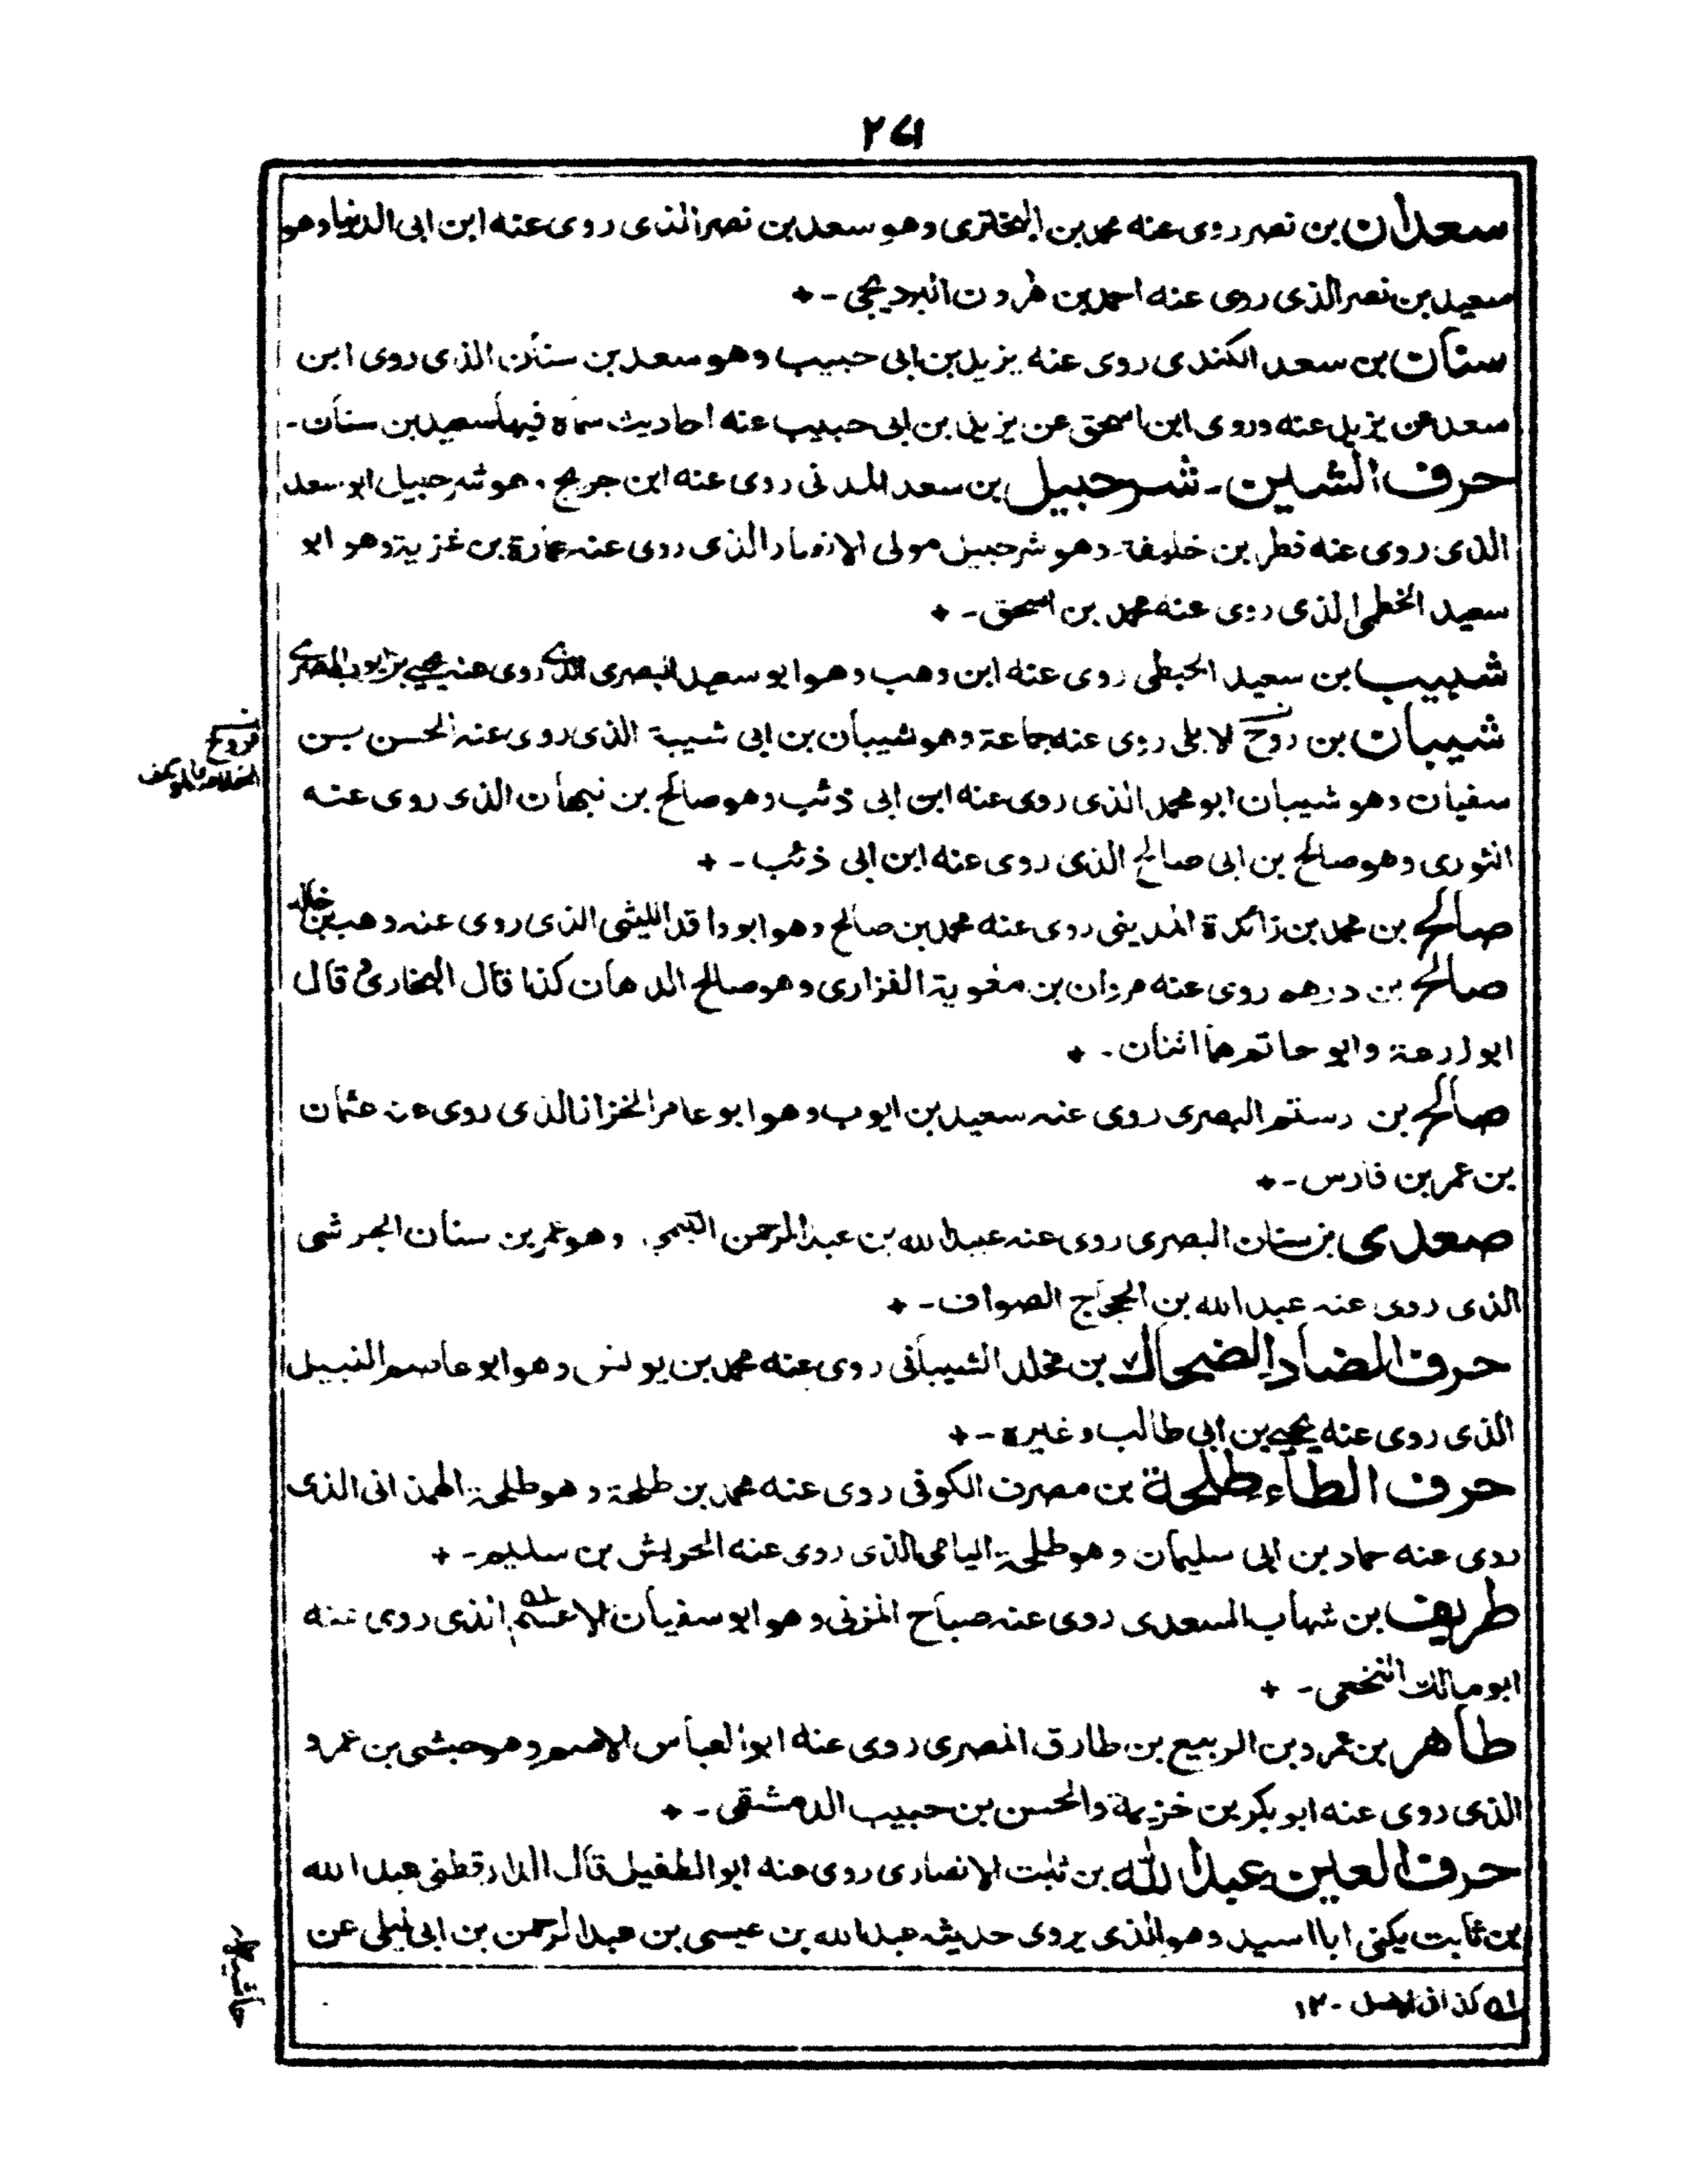 ٢٧١
سعدان بن نصر روى عنه محمد بن البختري وهو سعد بن نصر الذى روى عنه ابن ابى الدنيا وهو
سعيد بن نصر الذى روى عنه احمد بن هرون البرديجى -
سنان بن سعد الكندى روى عنه يزيد بن ابى حبيب وهو سعد بن سنان الذى روى ابن
سعد عن يزيد عنه وروى ابن اسحق عن يزيد بن ابى حبيب عنه احاديث سماه فيها سعيد بن سنان -
حرف الشين - شرحبيل بن سعد المدنى روى عنه ابن جريج وهو شرحبيل ابو سعد
الذى روى عنه فطر بن خليفة وهو شرحبيل مولى الانصار الذى روى عنه عمارة بن غزية وهو ابو
سعيد الخطمى الذى روى عنه محمد بن اسحق -
شبيب بن سعيد الحبطى روى عنه ابن وهب وهو ابو سعيد البصرى الذى روى عنه يحيى بن ايوب المصرى
شيبان بن روح الابلى روى عنه جماعة وهو شيبان بن ابى شيبة الذى روى عنه الحسن بن
سفيان وهو شيبان ابو محمد الذى روى عنه ابن ابى ذئب وهو صالح بن نبهان الذى روى عنه
الثورى وهو صالح بن ابى صالح الذى روى عنه ابن ابى ذئب -
صالح بن محمد بن زائدة المدينى روى عنه محمد بن صالح وهو ابو واقد الليثى الذى روى عنه وهب بن خالد
صالح بن درهم روى عنه مروان بن معوية الفزارى وهو صالح الدهان كذا قال البخارى و قال
ابو زرعة وابو حاتم هما اثنان -
صالح بن رستم البصرى روى عنه سعيد بن ايوب وهو ابو عامر الخزاز الذى روى عنه عثمان
بن عمر بن فارس -
صعدى بن سنان البصرى روى عنه عبيد الله بن عبد الرحمن التيمى وهو عمر بن سنان الجرشى
الذى روى عنه عبد الله بن الحجاج الصواف -
حرف الضاد الضحاك بن مخلد الشيبانى روى عنه محمد بن يونس وهو ابو عاصم النبيل
الذى روى عنه يحيى بن ابى طالب وغيره -
حرف الطاء طلحة بن مصرف الكوفى روى عنه محمد بن طلحة وهو طلحة الهمذانى الذى
روى عنه حماد بن ابى سليمان وهو طلحة اليامى الذى روى عنه الحريش بن سليم -
طريف بن شهاب السعدى روى عنه صباح المزنى وهو ابو سفيان الاعسم الذى روى عنه
ابو مالك النخعى -
طاهر بن عمرو بن الربيع بن طارق المصرى روى عنه ابو العباس الاصم وهو حبشى بن عمرو
الذى روى عنه ابو بكر بن خزيمة والحسن بن حبيب الدمشقى -
حرف العين عبد الله بن ثابت الانصارى روى عنه ابو الطفيل قال الدارقطنى عبد الله
بن ثابت يكنى ابا اسيد وهو الذى يروى حديثه عبد الله بن عيسى بن عبد الرحمن بن ابى ليلى عن
له كذا فى الاصل - ١٢
فروخ
حاشيه